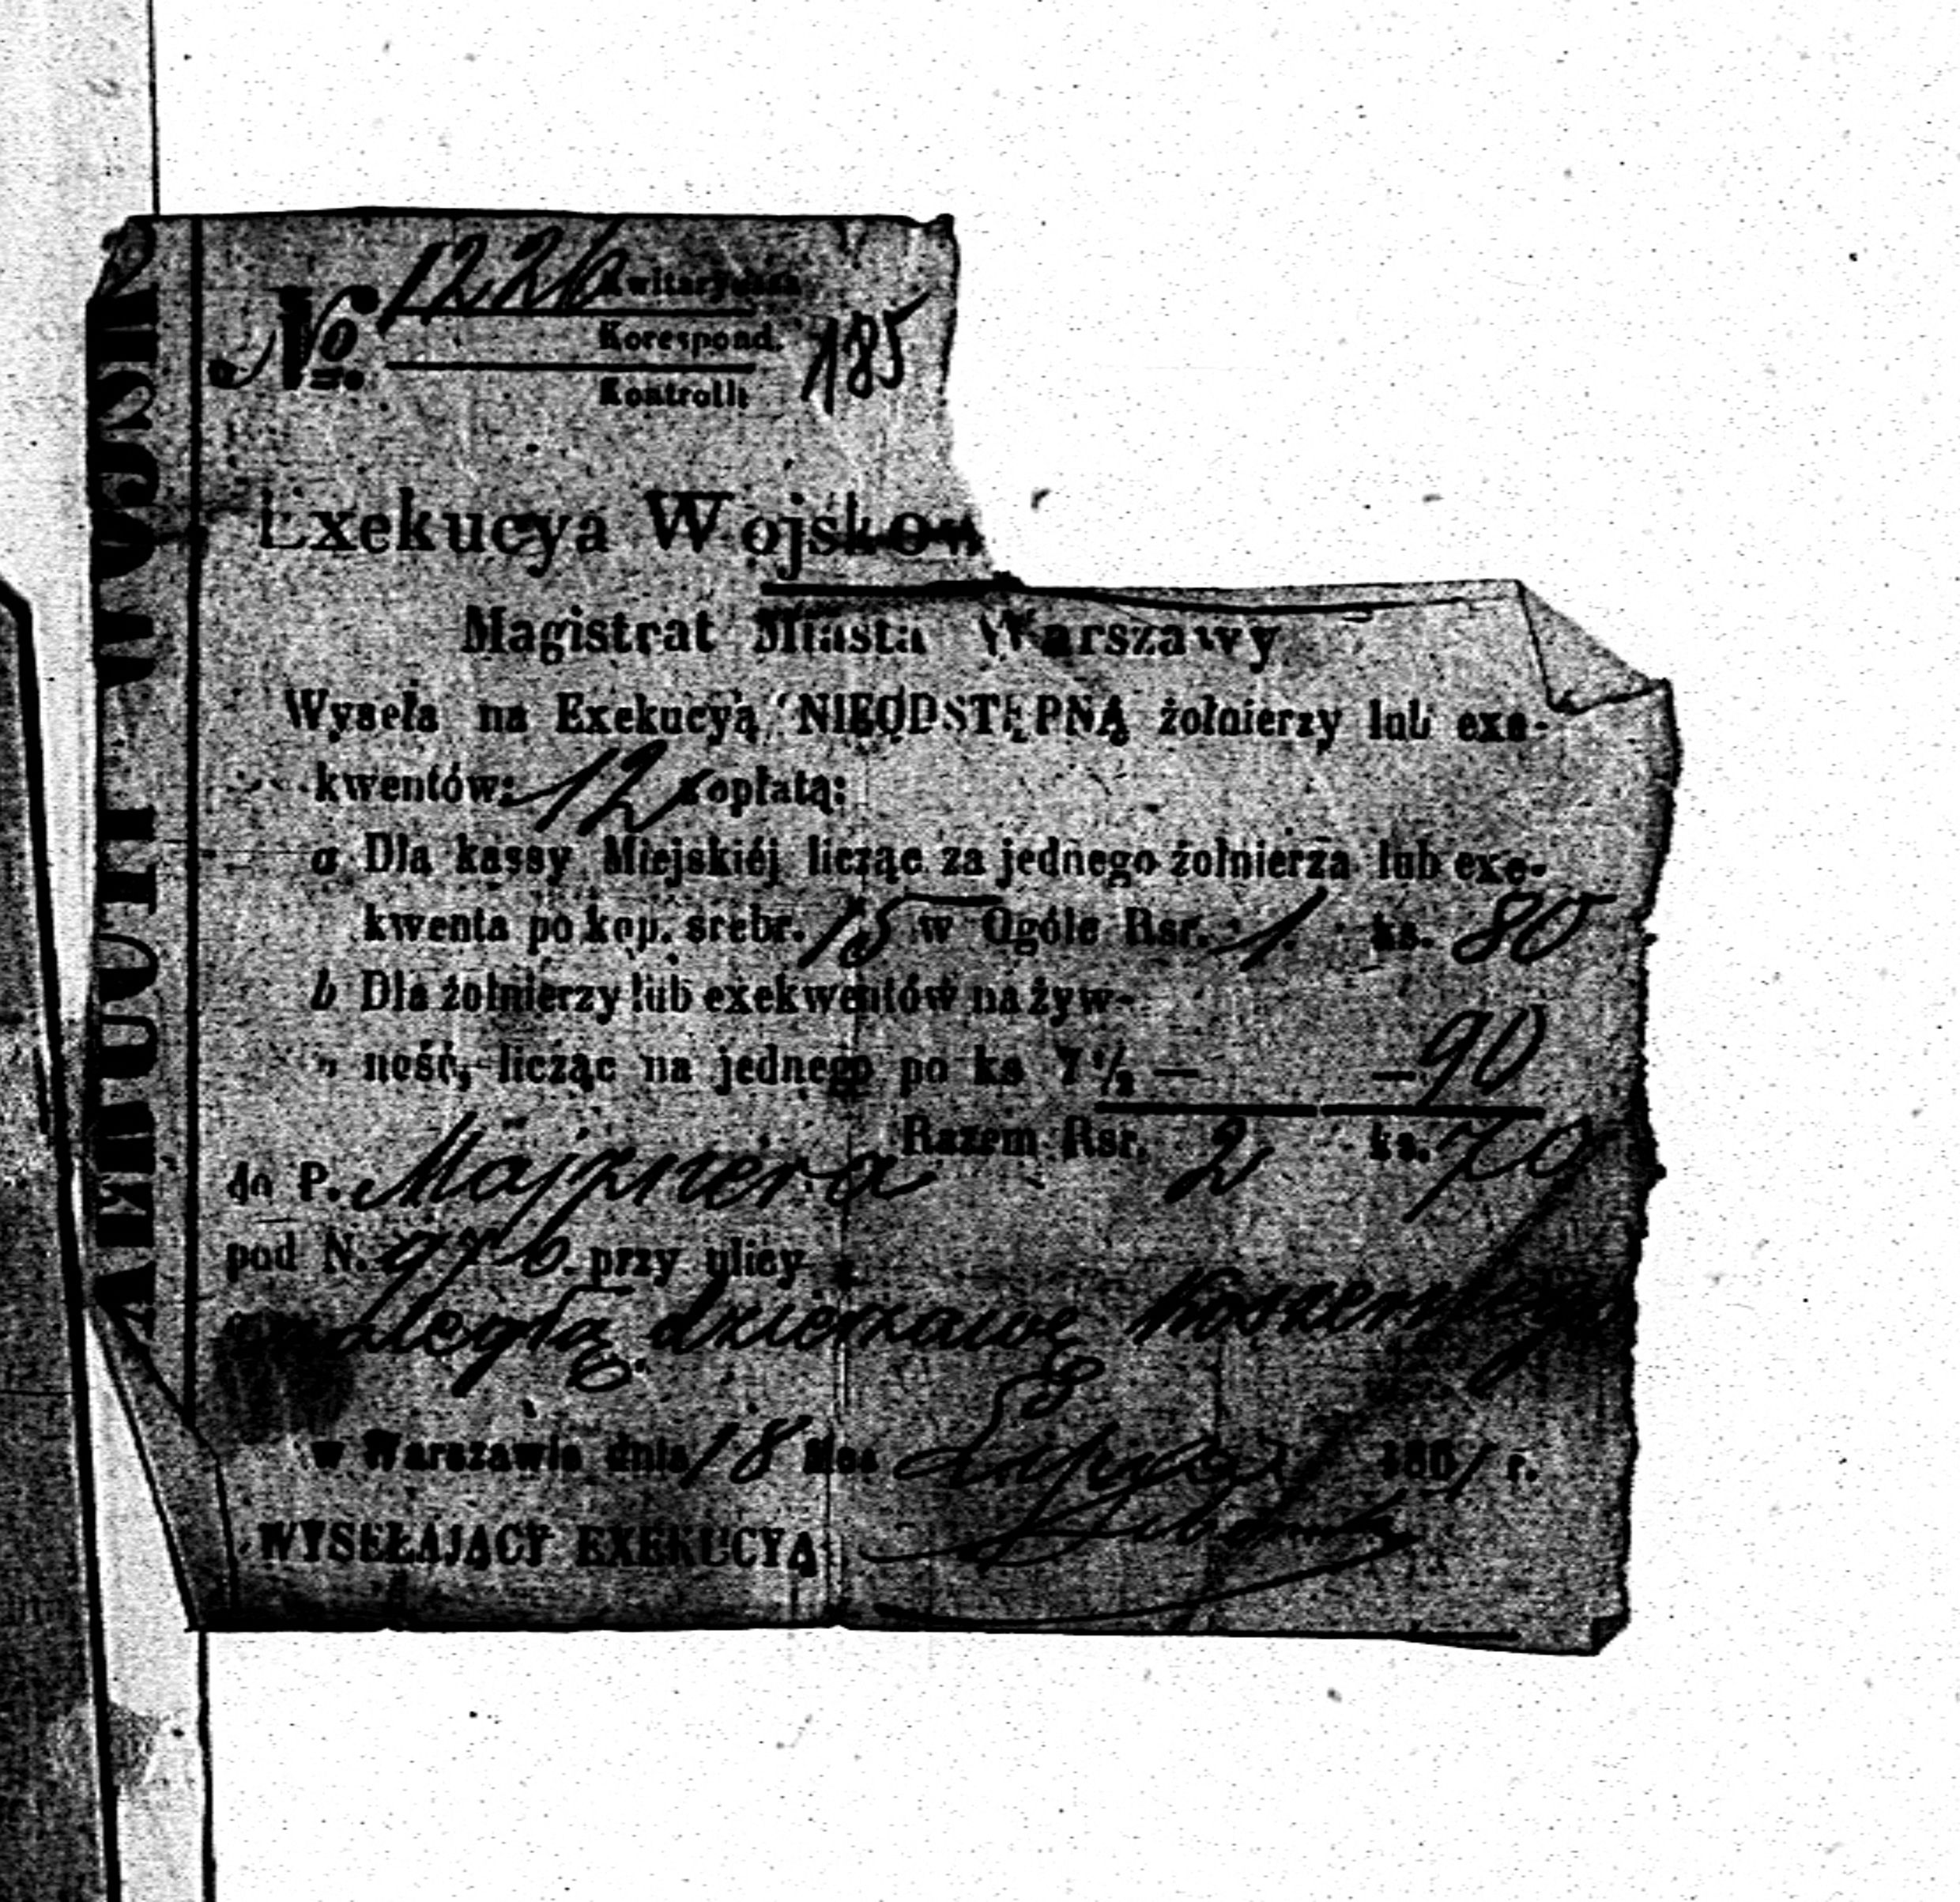 № 1226 Kwitaryusza
Korespond. 185
Kontrolli
Exekucya Wojskow
Magistrat Miasta Warszawy
Wyseła na Exekucyą NIEODSTĘPNĄ żołnierzy lub exe-
kwentów: 12 z opłatą:
a Dla kassy Miejskiéj licząc za jednego żołnierza lub exe-
kwenta po kop. srebr. 15 w Ogóle Rsr. 1 ks. 80
b Dla żołnierzy lub exekwentów na żyw-
„ ność, licząc na jednego po ks 7½ — — 90
Razem Rsr. 2 ks. 70
do P. Majznera
pod N. przy ulicy
zaległą dzierzawę
w Warszawie dnia 18 Mca Lipca 1861 r.
WYSEŁAJĄCY EXEKUCYĄ